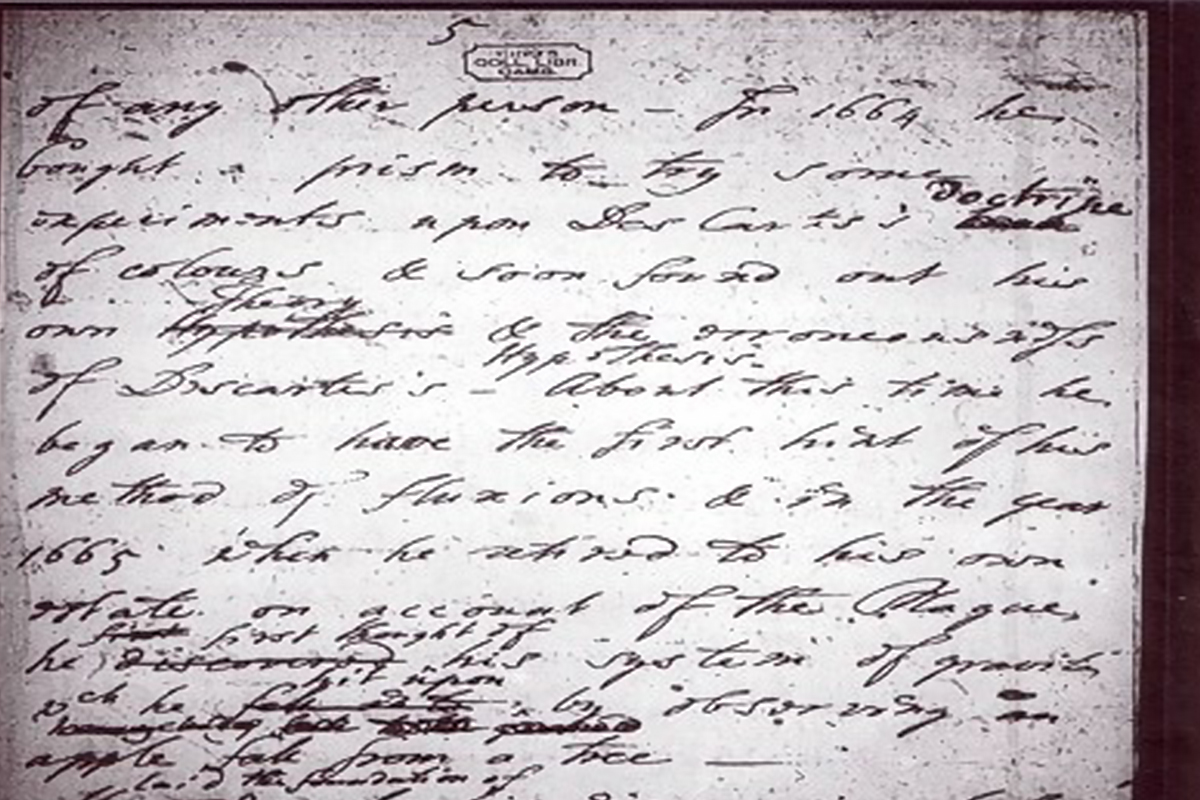 5
KING'S
COLL. LIBR.
CAMB.
of any other person - In 1664 he
bought prism to try some
doctrine
experiments upon Des Cartes's
of colours & soon found out his
Theory
own Hypothesis & the erroneousness
Hypothesis.
of Descartes's - About this time he
began to have the first hint of his
method of fluxions & in the year
1665 when he retired to his own
estate on account of the Plague,
first first thought of
he discovered his system of gravity
hit upon
wch he by observing an
apple fall from a tree —
laid the foundation of